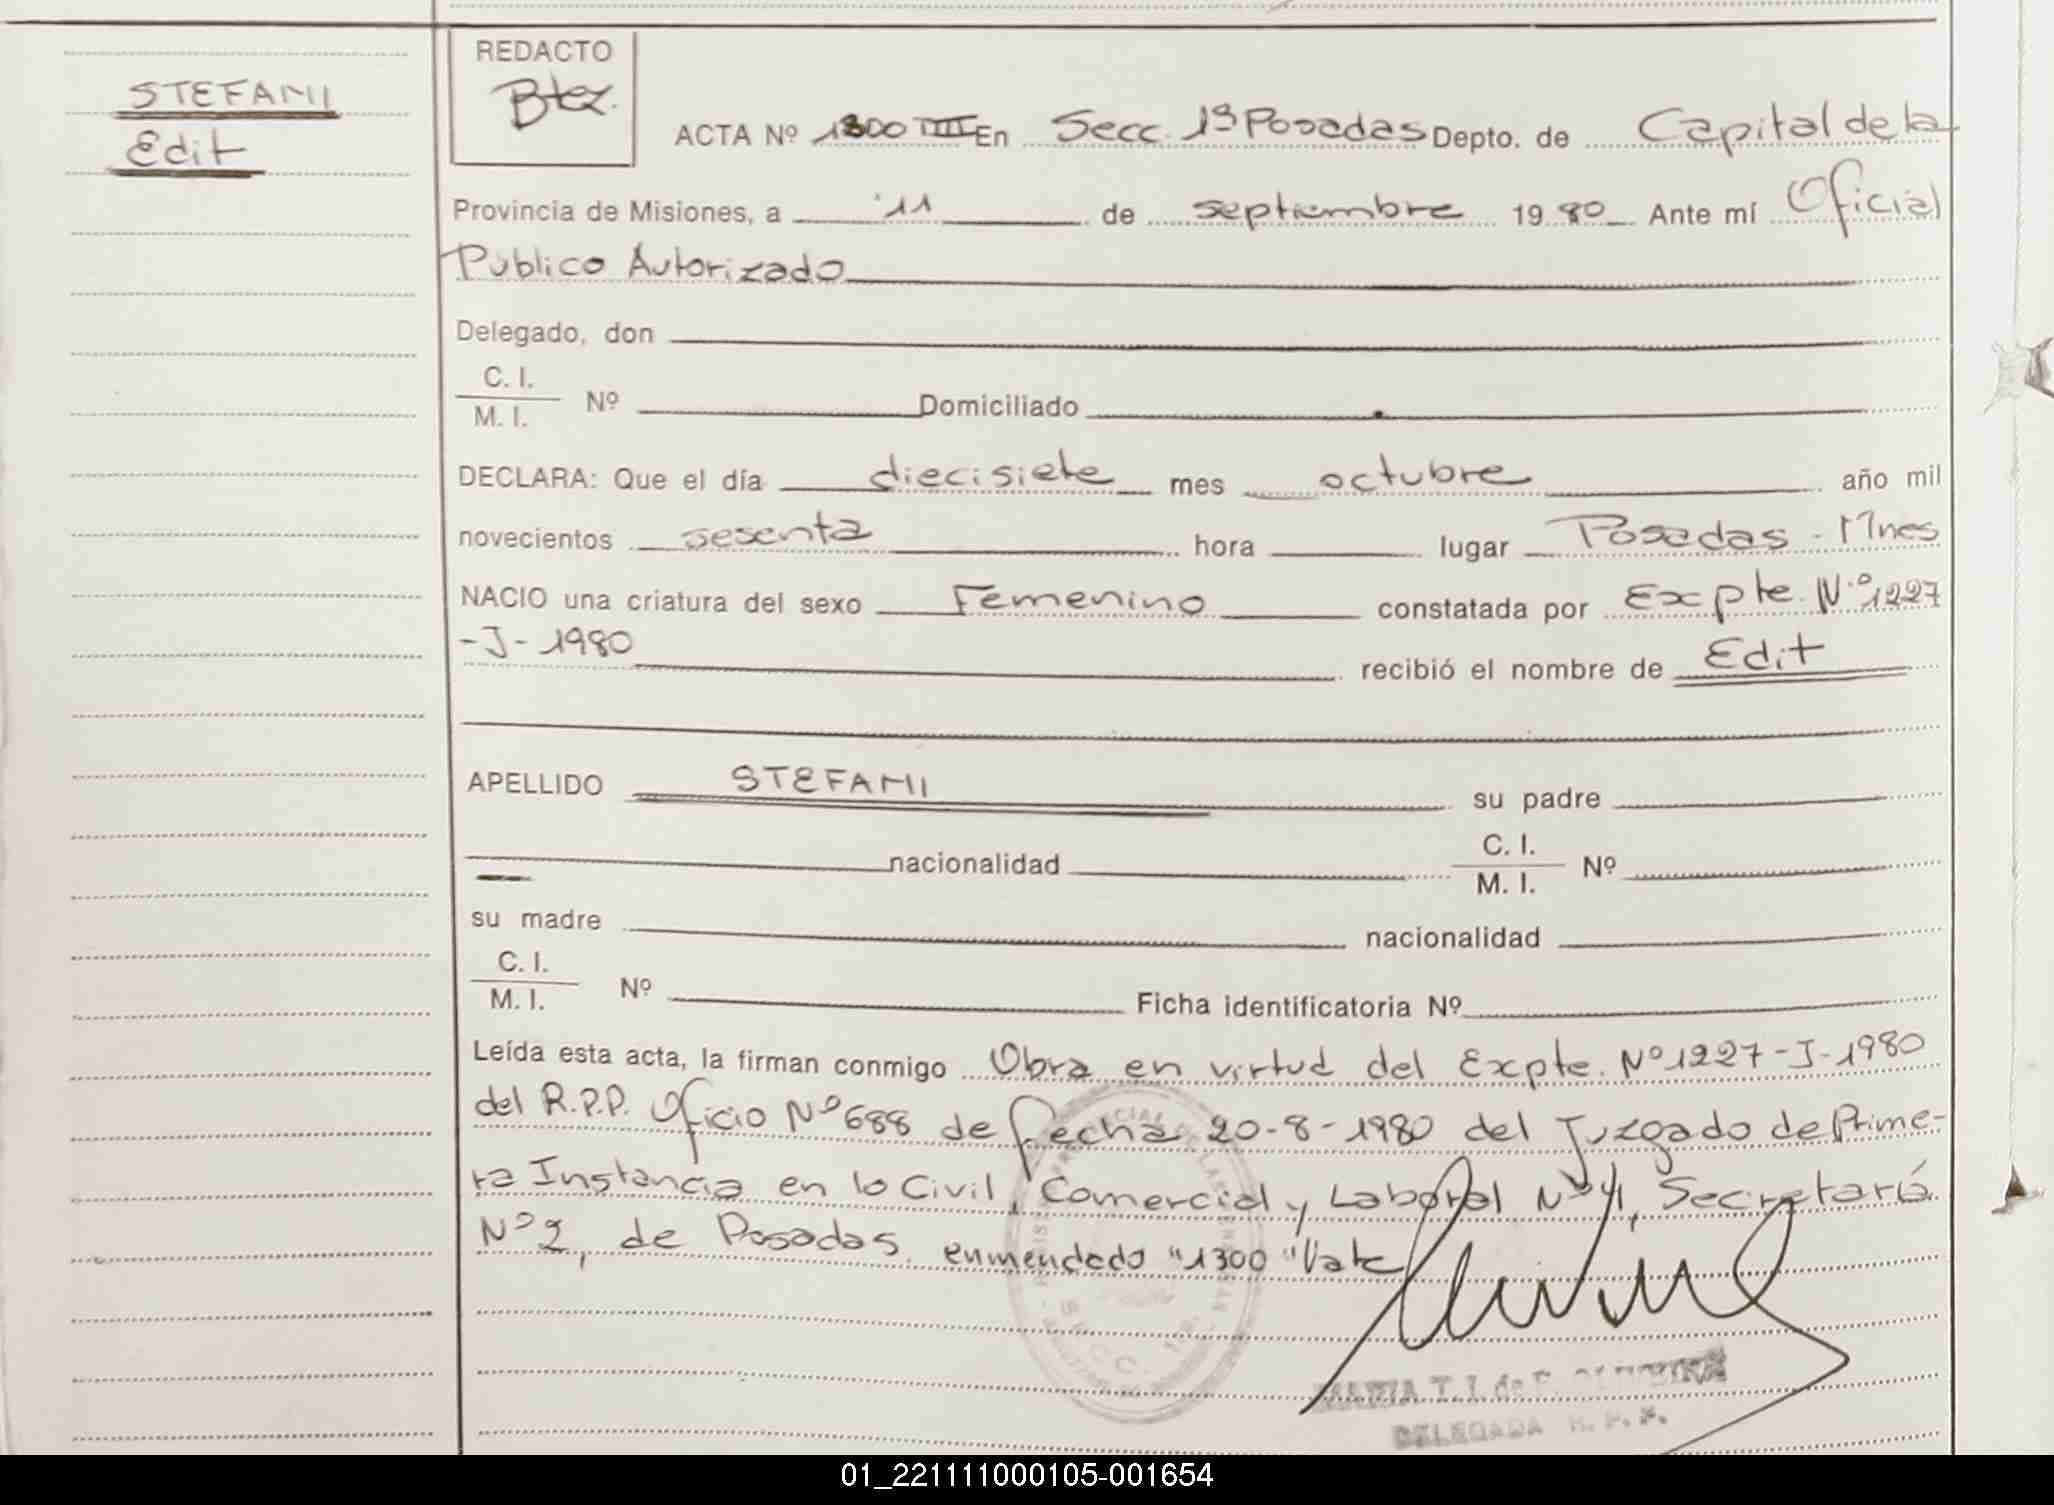 STEFANI
Edit
REDACTO
Btez.
ACTA Nº 1300 TIII En Secc. 1ª Posadas Depto. de Capital de la
Provincia de Misiones, a 11 de septiembre 1980 Ante mí Oficial
Público Autorizado
Delegado, don
C. I.
M. I. Nº Domiciliado
DECLARA: Que el día diecisiete mes octubre año mil
novecientos sesenta hora lugar Posadas - Mnes
NACIO una criatura del sexo Femenino constatada por Expte. Nº 1227
-J- 1980
recibió el nombre de Edit
APELLIDO STEFANI su padre
nacionalidad C. I.
M. I. Nº
su madre nacionalidad
C. I.
M. I. Nº Ficha identificatoria Nº
Leída esta acta, la firman conmigo Obra en virtud del Expte. Nº 1227-J-1980
del R.P.P. Oficio Nº 688 de fecha 20-8-1980 del Juzgado de Prime-
ra Instancia en lo Civil, Comercial y Laboral Nº 4, Secretaría
Nº 2, de Posadas. enmendado "1300" Vale
SECC. 1a.
MARIA T. J. de
DELEGADA R. P. P.
01_221111000105-001654